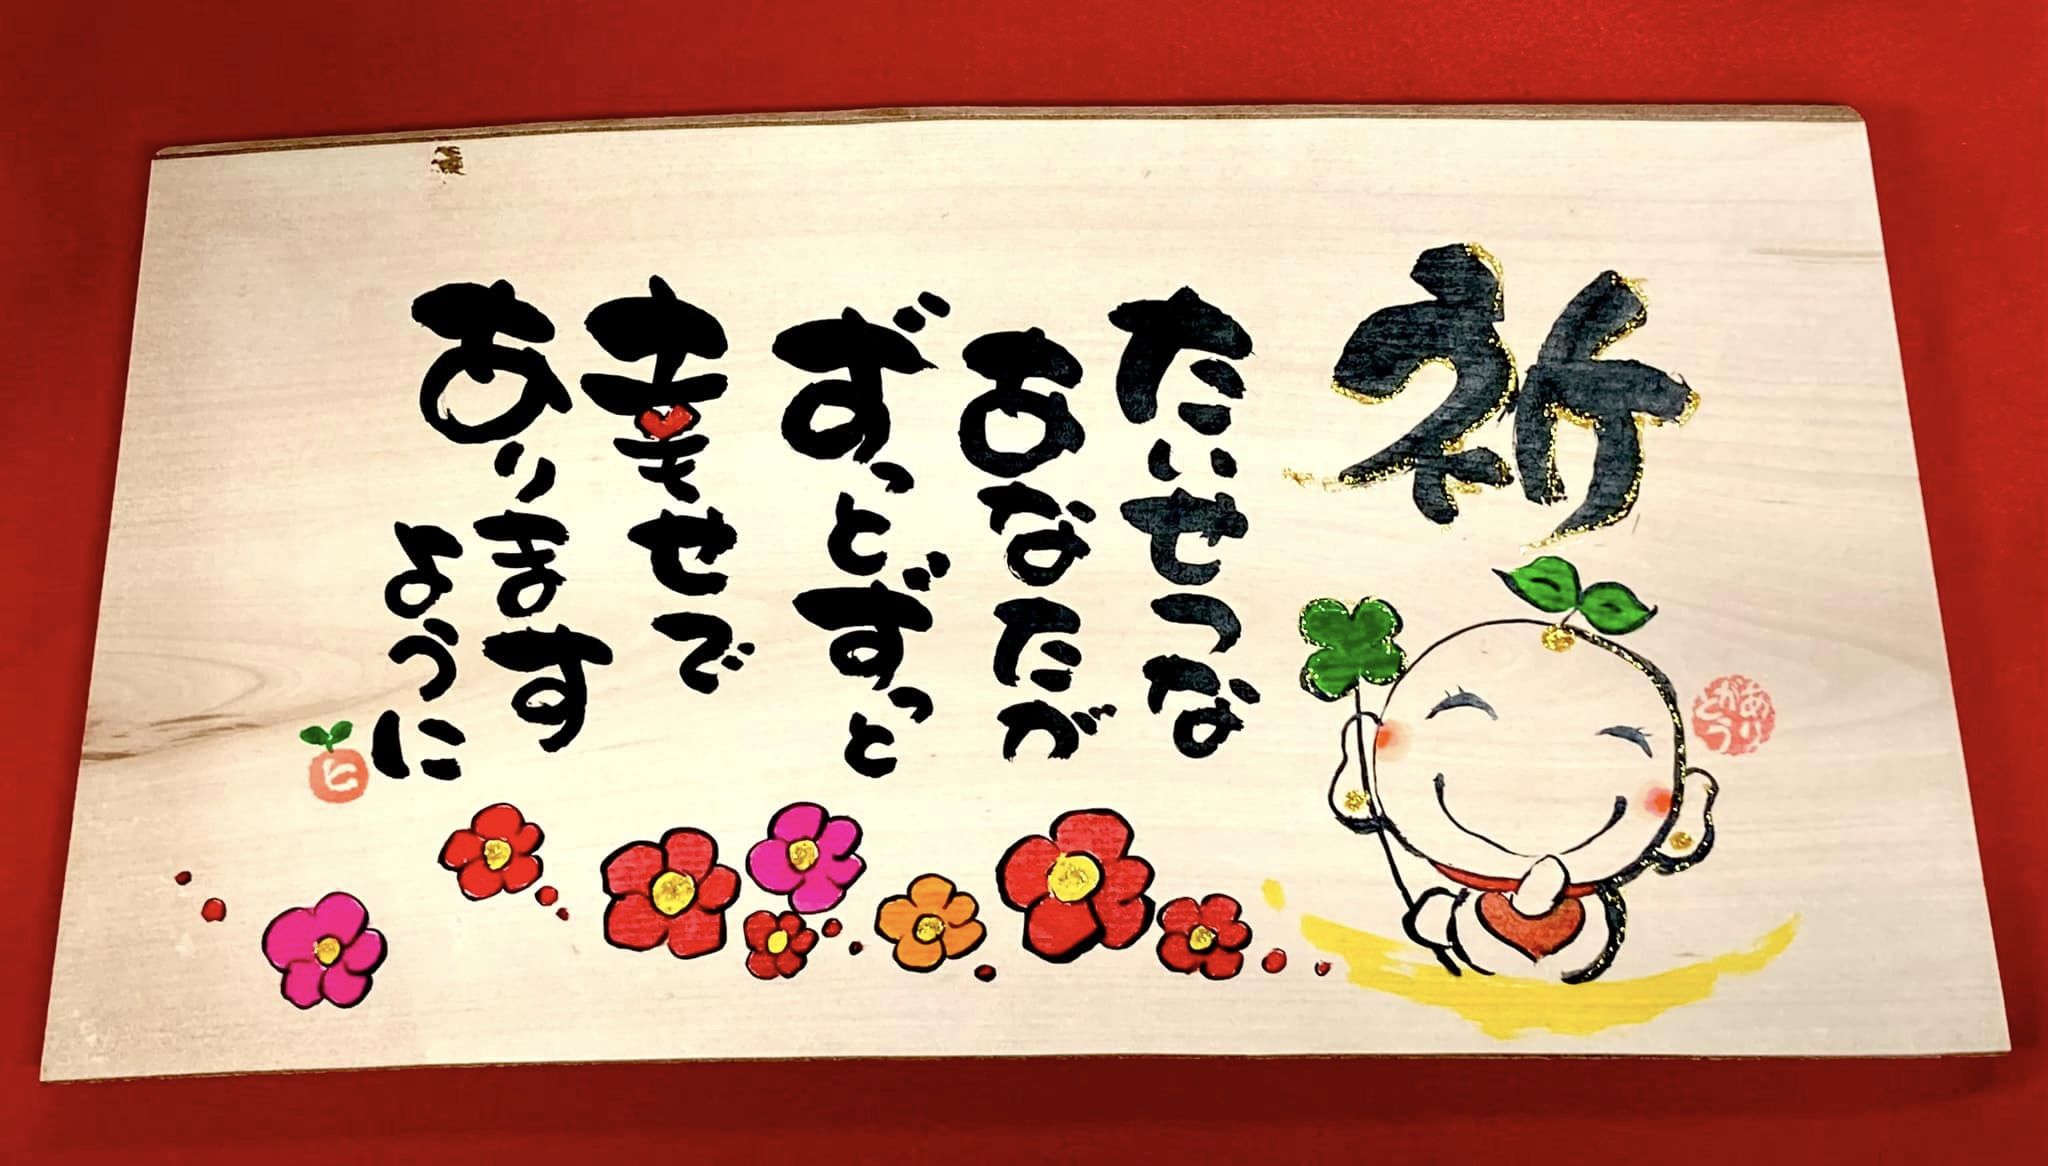 祈
たいせつな
あなたが
ずっとずっと
幸せで
あります
ように
ヒ
ありがとう